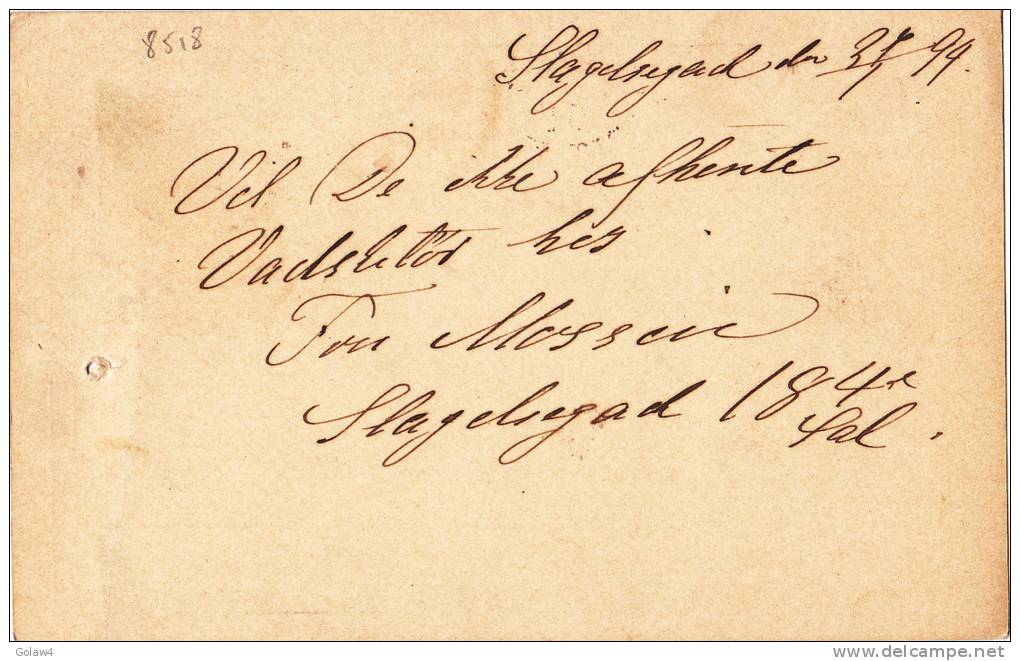 8518
Slagelsegad den 94.
Vil De ikke afhente
Vadsketöi hos
Fru Mossin
Slagelsegad 18 4e
Sal.
Golaw4
delcampe.net